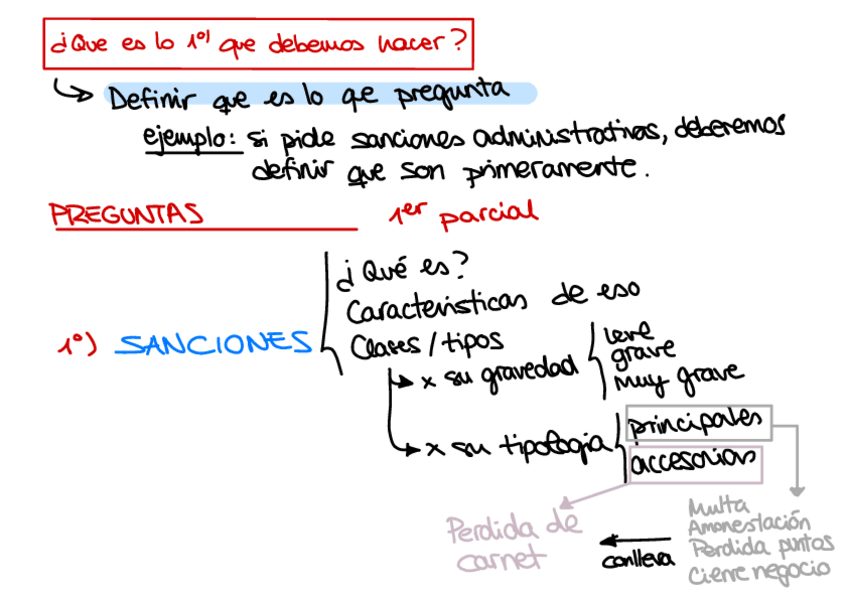 ¿Que es lo 1º) que debemos hacer?
Definir que es lo qe pregunta
ejemplo: si pide sanciones administrativas, deberemos
definir que son primeramente.
PREGUNTAS 1er parcial
¿Qué es?
Características de eso
1º) SANCIONES
Clases/tipos
x su gravedad
leve
grave
muy grave
x su tipología
principales
accesorias
Perdida de
carnet
conlleva
Multa
Amonestación
Perdida puntos
Cierre negocio